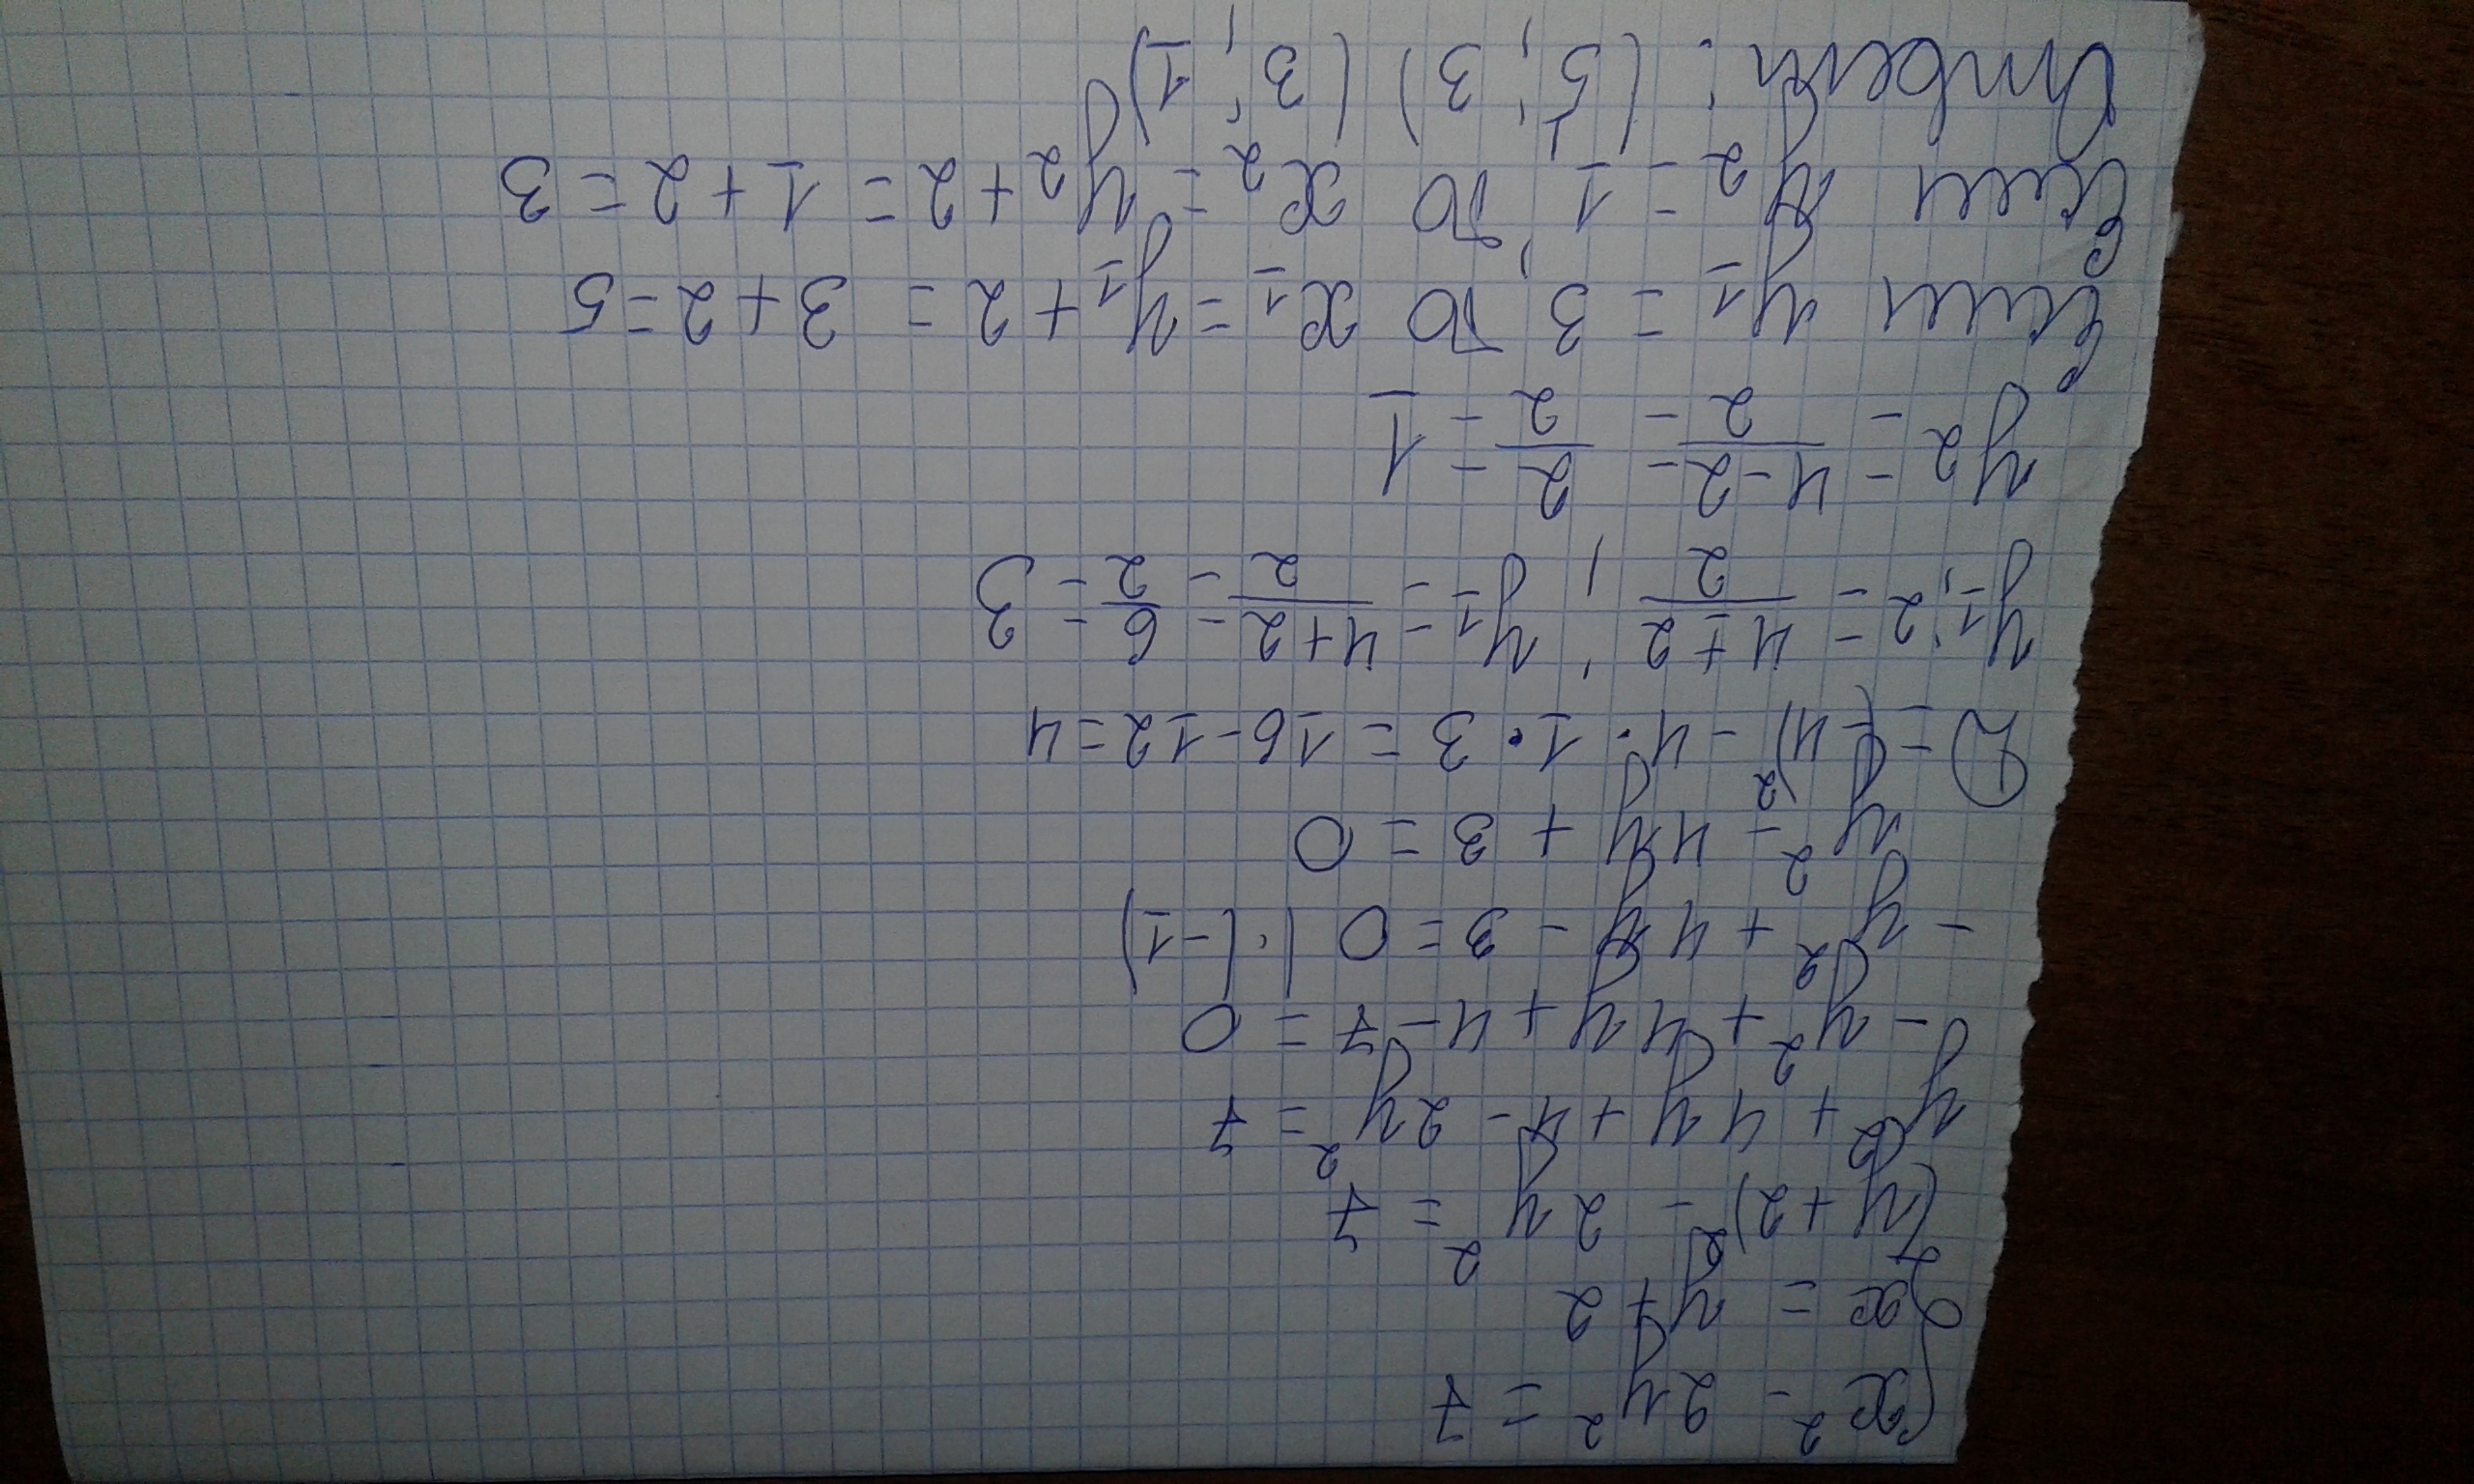 { x² - 2y² = 7
x = y + 2
(y + 2)² - 2y² = 7
y² + 4y + 4 - 2y² = 7
- y² + 4y + 4 - 7 = 0
- y² + 4y - 3 = 0 | · (-1)
y² - 4y + 3 = 0
D = (-4)² - 4 · 1 · 3 = 16 - 12 = 4
y1,2 = (4 ± 2)/2 ; y1 = (4+2)/2 = 6/2 = 3
y2 = (4-2)/2 = 2/2 = 1
Если y1 = 3, то x1 = y1 + 2 = 3 + 2 = 5
Если y2 = 1, то x2 = y2 + 2 = 1 + 2 = 3
Ответ: (5; 3) (3; 1)